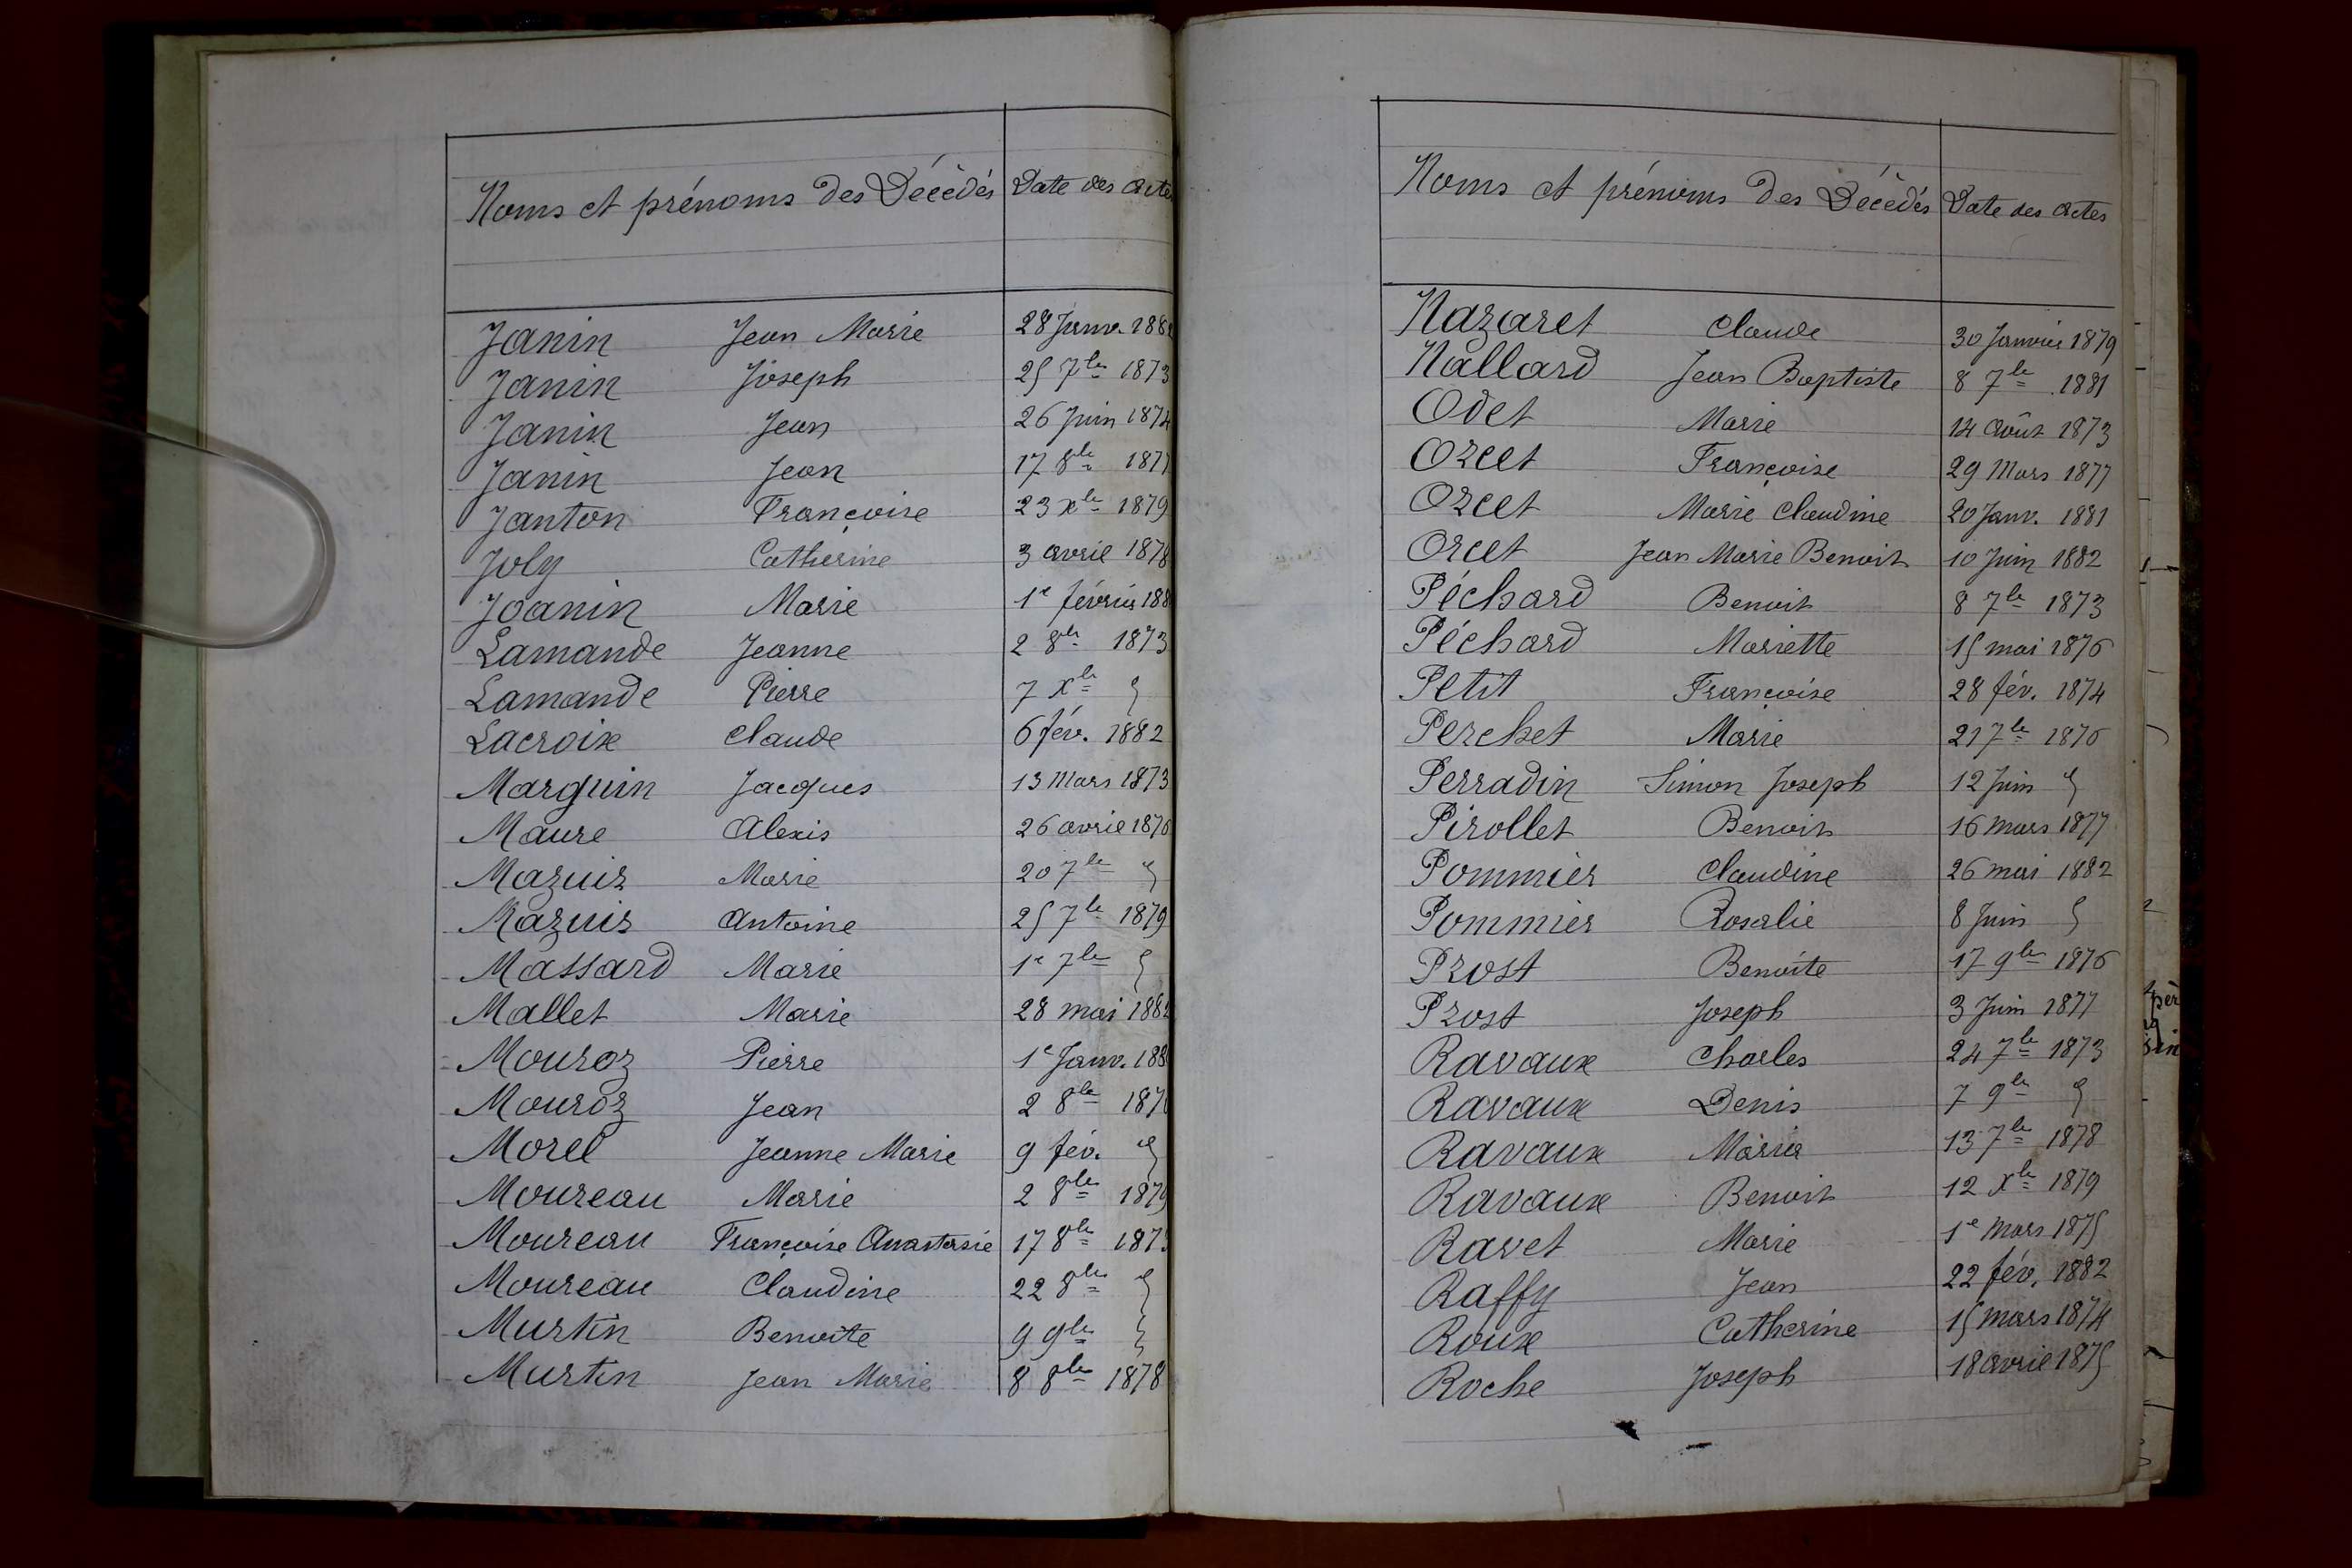 Noms et prénoms des Décédés Date des actes
Janin Jean Marie 28 Janv. 188
Janin Joseph 25 7bre 1873
Janin Jean 26 Juin 1874
Janin Jean 17 8bre 1877
Janton Françoise 23 xbre 1879
Joly Catherine 3 avril 1878
Joanin Marie 1e février 188
Lamande Jeanne 2 8bre 1873
Lamande Pierre 7 Xbre "
Lacroix Claude 6 fév. 1882
Marguin Jacques 13 Mars 1873
Maure Alexis 26 avril 1876
Mazuir Marie 20 7bre "
Mazuir Antoine 25 7bre 1879
Massard Marie 1e 7bre "
Mallet Marie 28 mai 1882
Mouroz Pierre 1e Janv. 188
Mouroz Jean 2 8bre 187
Morel Jeanne Marie 9 fév. "
Moureau Marie 2 8bre 1879
Moureau Françoise Anastasie 17 8bre 187
Moureau Claudine 22 8bre "
Murtin Benoite 9 9bre "
Murtin Jean Marie 8 8bre 1878
Noms et prénoms des Décédés Date des actes
Nazaret Claude 30 Janvier 1879
Nallard Jean Baptiste 8 7bre 1881
Odet Marie 14 août 1873
Orcet Françoise 29 Mars 1877
Orcet Marie Claudine 20 Janv. 1881
Orcet Jean Marie Benoit 10 Juin 1882
Péchard Benoit 8 7bre 1873
Péchard Mariette 15 mai 1876
Petit Françoise 28 fév. 1874
Perchet Marie 21 7bre 1876
Perradin Simon Joseph 12 Juin "
Pirollet Benoit 16 mars 1877
Pommier Claudine 26 mai 1882
Pommier Rosalie 8 Juin "
Prost Benoite 17 9bre 1876
Prost Joseph 3 Juin 1877
Ravaux Charles 24 7bre 1873
Ravaux Denis 7 9bre "
Ravaux Marier 13 7bre 1878
Ravaux Benoit 12 Xbre 1879
Ravet Marie 1e Mars 1875
Raffy Jean 22 fév. 1882
Roux Catherine 15 mars 1874
Roche Joseph 18 avril 1875